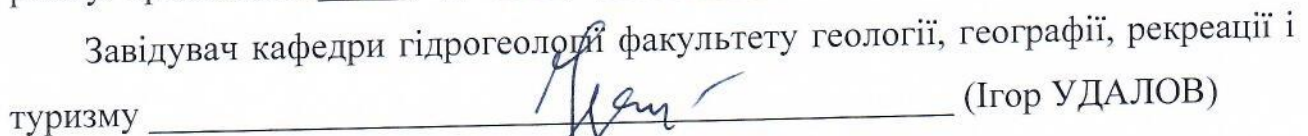 Завідувач кафедри гідрогеології факультету геології, географії, рекреації і
туризму ______________________ (Ігор УДАЛОВ)